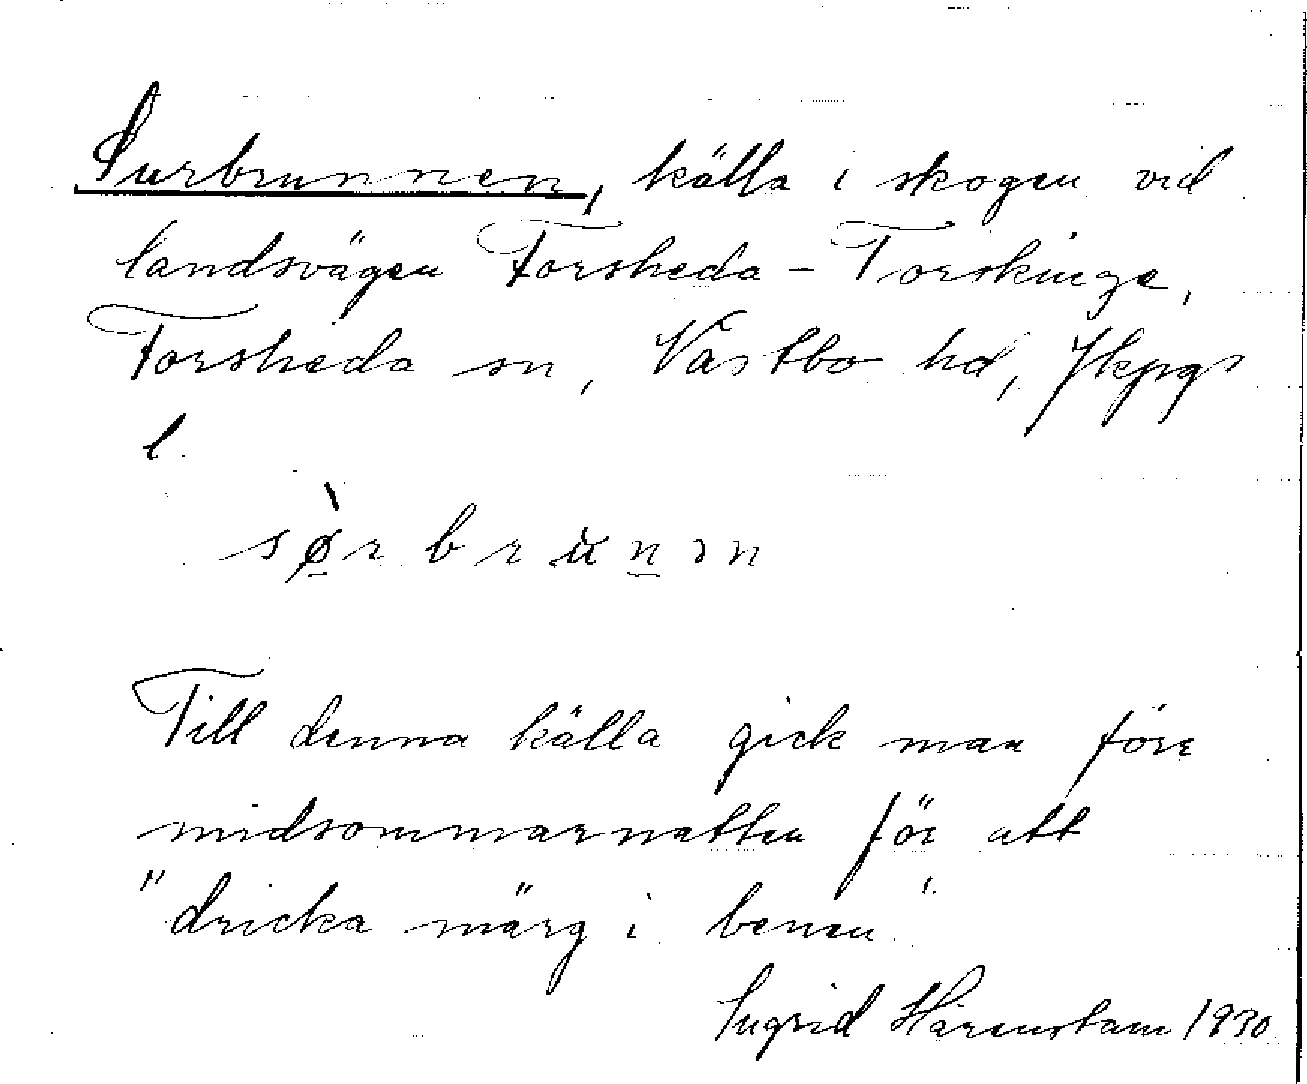 Surbrunnen, källa i skogen vid
landsvägen Forsheda - Torskinge,
Forsheda sn, Västbo hd, Jkpgs
l.
sø̀rbrunən
Till denna källa gick man före
midsommarnatten för att
"dricka märg i benen".
Ingrid Härenstam 1930